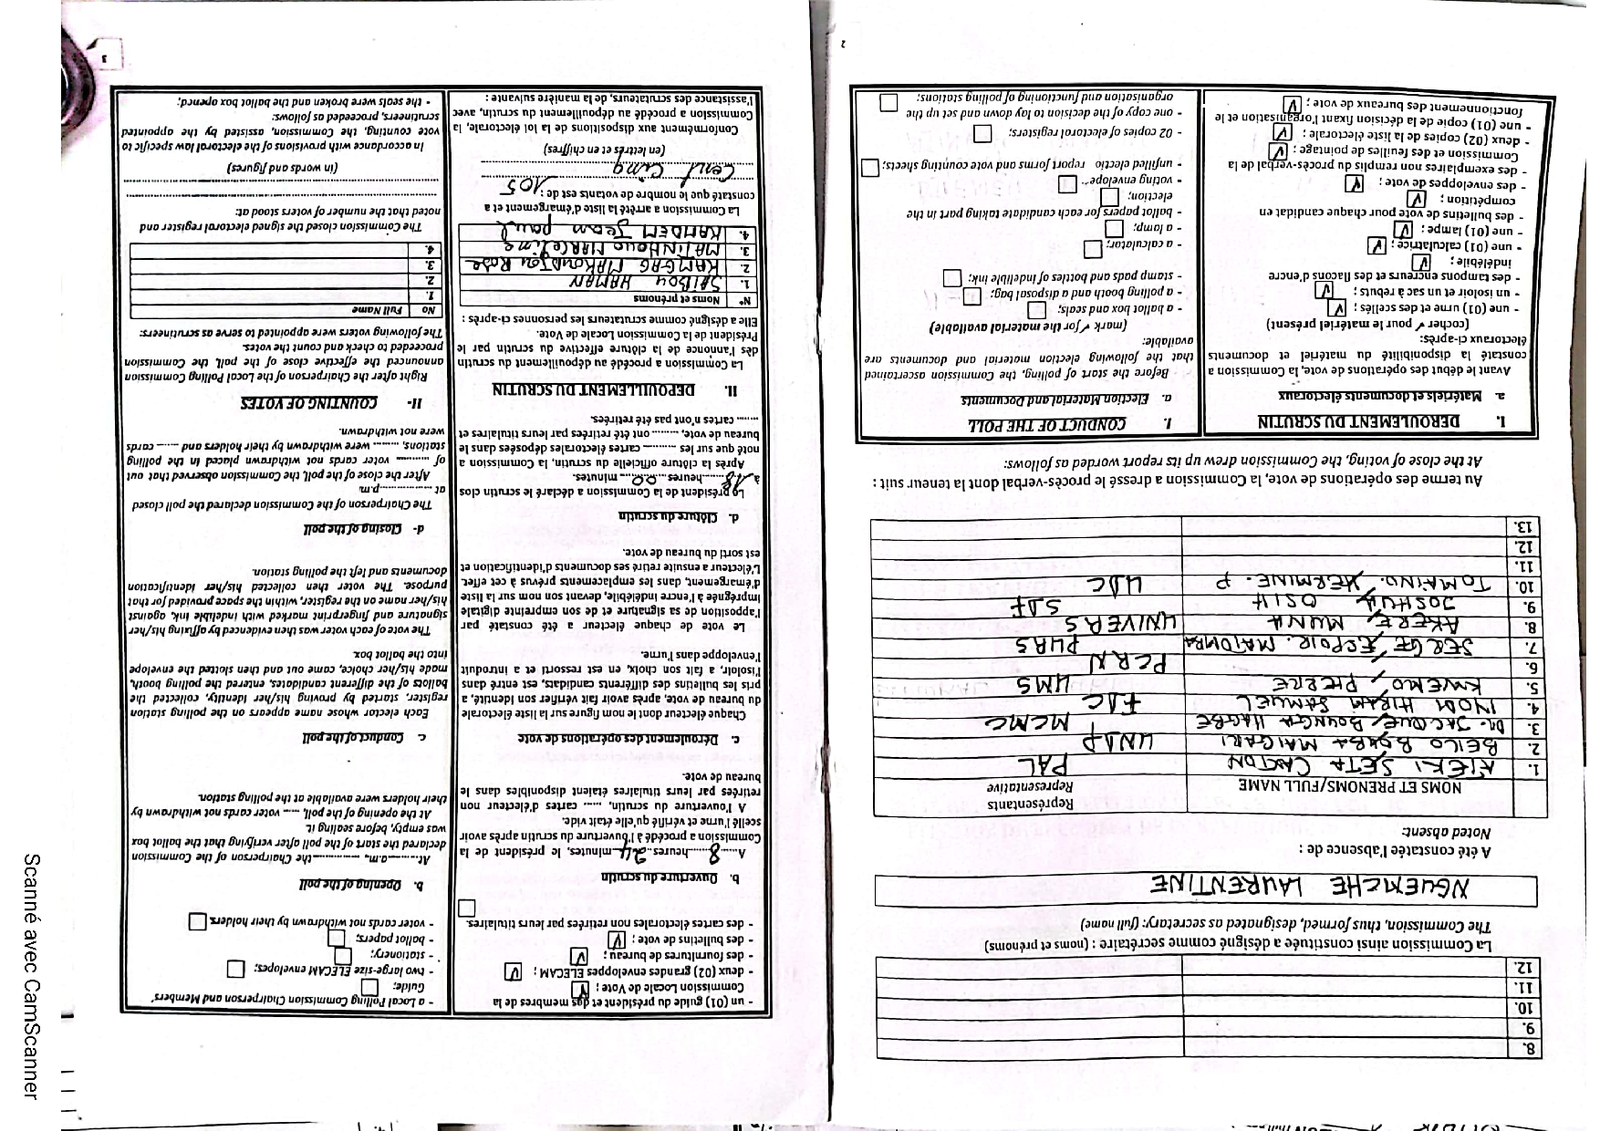 8.
9.
10.
11.
12.
La Commission ainsi constituée a désigné comme secrétaire : (noms et prénoms)
The Commission, thus formed, designated as secretary: (full name)
NGUEMCHE LAURENTINE
A été constatée l'absence de :
Noted absent:
NOMS ET PRENOMS/FULL NAME Représentants
Representative
1. KIEKI SETA CAXTON PAL
2. BELLO BOUBA MAIGARI UNDP
3. Dr. JACQUE BOUNGA HAGBE MCMC
4. INOM HIRAM SAMUEL FDC
5. KWEMO PIERRE UMS
6. PCRN
7. SERGE ESPOIR MATOMBA PURS
8. AKERE MUNA UNIVERS
9. JOSHUA OSIH SDF
10. TOMAINO HERMINE P. UDC
11.
12.
13.
Au terme des opérations de vote, la Commission a dressé le procès-verbal dont la teneur suit :
At the close of voting, the Commission drew up its report worded as follows:
I. DEROULEMENT DU SCRUTIN
a. Matériels et documents électoraux
Avant le début des opérations de vote, la Commission a
constaté la disponibilité du matériel et documents
électoraux ci-après:
(cocher ✓ pour le matériel présent)
- une (01) urne et des scellés ; V
- un isoloir et un sac à rebuts ; V
- des tampons encreurs et des flacons d'encre
indélébile; V
- une (01) calculatrice ; V
- une (01) lampe ; V
- des bulletins de vote pour chaque candidat en
compétition ; V
- des enveloppes de vote ; V
- des exemplaires non remplis du procès-verbal de la
Commission et des feuilles de pointage ; V
- deux (02) copies de la liste électorale ; V
- une (01) copie de la décision fixant l'organisation et le
fonctionnement des bureaux de vote ; V
I. CONDUCT OF THE POLL
a. Election Material and Documents
Before the start of polling, the Commission ascertained
that the following election material and documents are
available:
(mark ✓ for the material available)
- a ballot box and seals;
- a polling booth and a disposal bag;
- stamp pads and bottles of indelible ink;
- a calculator;
- a lamp;
- ballot papers for each candidate taking part in the
election;
- voting envelope;
- unfilled electio report forms and vote counting sheets;
- 02 copies of electoral registers;
- one copy of the decision to lay down and set up the
organisation and functioning of polling stations;
2
- un (01) guide du président et des membres de la
Commission Locale de Vote ; V
- deux (02) grandes enveloppes ELECAM ; V
- des fournitures de bureau ; V
- des bulletins de vote ; V
- des cartes électorales non retirées par leurs titulaires.
b. Ouverture du scrutin
A 8 heures 24 minutes, le président de la
Commission a procédé à l'ouverture du scrutin après avoir
scellé l'urne et vérifié qu'elle était vide.
A l'ouverture du scrutin, ...... cartes d'électeur non
retirées par leurs titulaires étaient disponibles dans le
bureau de vote.
c. Déroulement des opérations de vote
Chaque électeur dont le nom figure sur la liste électorale
du bureau de vote, après avoir fait vérifier son identité, a
pris les bulletins des différents candidats, est entré dans
l'isoloir, a fait son choix, en est ressorti et a introduit
l'enveloppe dans l'urne.
Le vote de chaque électeur a été constaté par
l'apposition de sa signature et de son empreinte digitale
imprégnée à l'encre indélébile, devant son nom sur la liste
d'émargement, dans les emplacements prévus à cet effet.
L'électeur a ensuite retiré ses documents d'identification et
est sorti du bureau de vote.
d. Clôture du scrutin
Le président de la Commission a déclaré le scrutin clos
à 18 heures 00 minutes.
Après la clôture officielle du scrutin, la Commission a
noté que sur les ......... cartes électorales déposées dans le
bureau de vote, ......... ont été retirées par leurs titulaires et
...... cartes n'ont pas été retirées.
II. DEPOUILLEMENT DU SCRUTIN
La Commission a procédé au dépouillement du scrutin
dès l'annonce de la clôture effective du scrutin par le
Président de la Commission Locale de Vote.
Elle a désigné comme scrutateurs les personnes ci-après :
N° Noms et prénoms
1. SALIBOU HAMAN
2. KAMGAG MAKOUDJOU Rose
3. MATINHOUO MARCELINE
4. KAMDEM Jean paul
La Commission a arrêté la liste d'émargement et a
constaté que le nombre de votants est de : 105
Cent Cinq
(en lettres et en chiffres)
Conformément aux dispositions de la loi électorale, la
Commission a procédé au dépouillement du scrutin, avec
l'assistance des scrutateurs, de la manière suivante :
- a Local Polling Commission Chairperson and Members'
Guide;
- two large-size ELECAM envelopes;
- stationery;
- ballot papers;
- voter cards not withdrawn by their holders.
b. Opening of the poll
At.........a.m, ............the Chairperson of the Commission
declared the start of the poll after verifying that the ballot box
was empty, before sealing it.
At the opening of the poll, ...... voter cards not withdrawn by
their holders were available at the polling station.
c. Conduct of the poll
Each elector whose name appears on the polling station
register, started by proving his/her identity, collected the
ballots of the different candidates, entered the polling booth,
made his/her choice, come out and then slotted the envelope
into the ballot box.
The vote of each voter was then evidenced by affixing his/her
signature and fingerprint marked with indelible ink, against
his/her name on the register, within the space provided for that
purpose. The voter then collected his/her identification
documents and left the polling station.
d- Closing of the poll
The Chairperson of the Commission declared the poll closed
at ..................p.m.
After the close of the poll the Commission observed that out
of ......... voter cards not withdrawn placed in the polling
stations, ......... were withdrawn by their holders and ...... cards
were not withdrawn.
II- COUNTING OF VOTES
Right after the Chairperson of the Local Polling Commission
announced the effective close of the poll, the Commission
proceeded to check and count the votes.
The following voters were appointed to serve as scrutineers:
No Full Name
1.
2.
3.
4.
The Commission closed the signed electoral register and
noted that the number of voters stood at:
(in words and figures)
In accordance with provisions of the electoral law specific to
vote counting, the Commission, assisted by the appointed
scrutineers, proceeded as follows:
- the seals were broken and the ballot box opened;
3
Scanné avec CamScanner